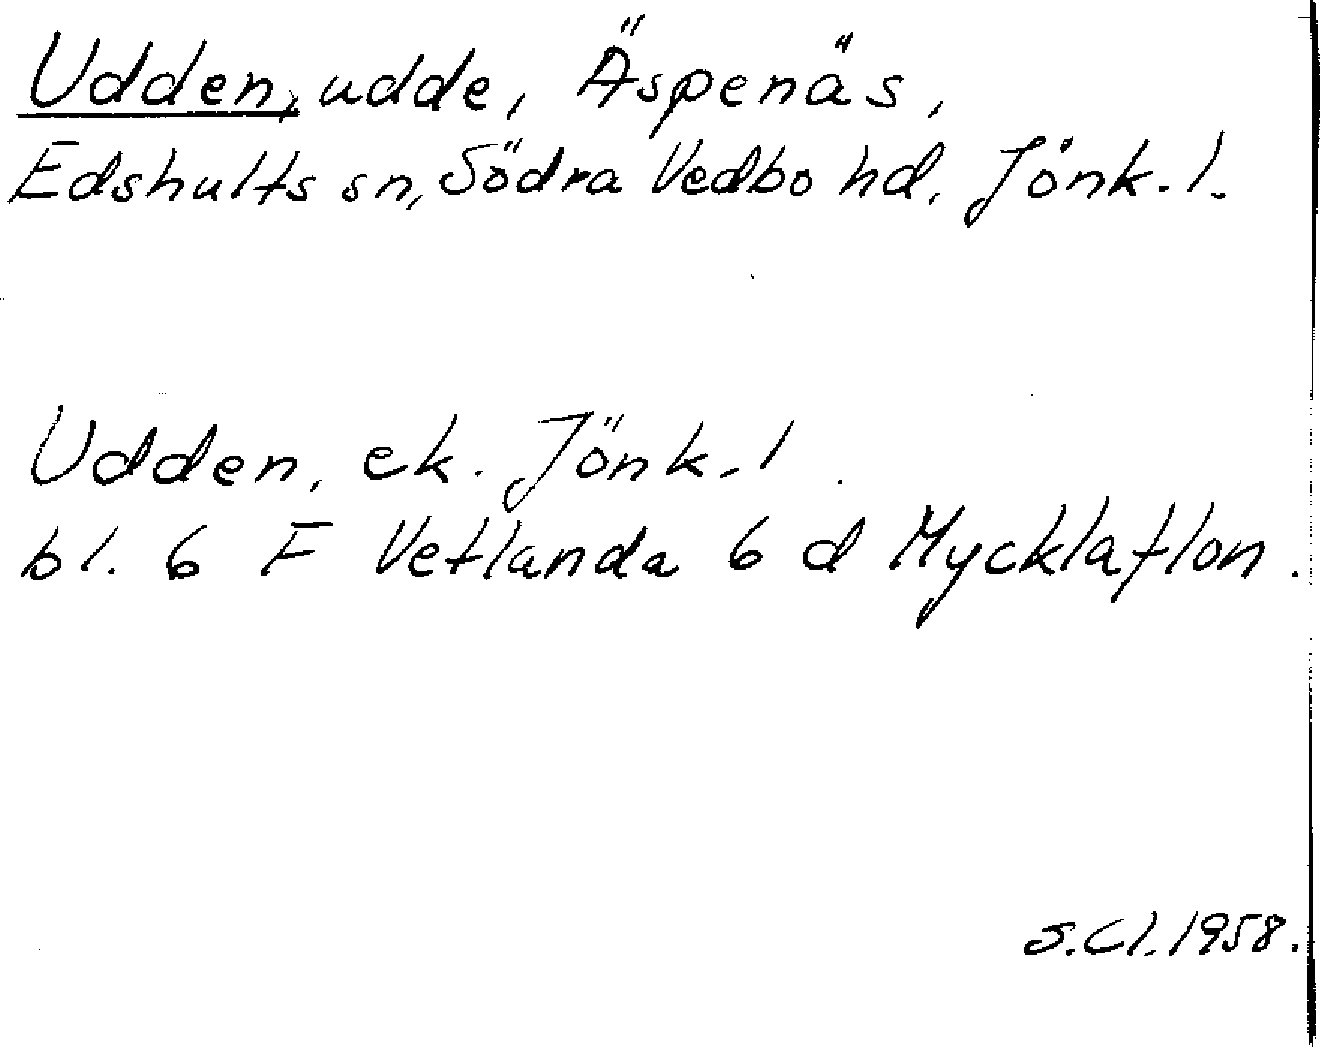 Udden, udde, Äspenäs,
Edshults sn, Södra Vedbo hd, Jönk. l.
Udden, ek. Jönk. l.
bl. 6 F Vetlanda 6 d Mycklaflon.
S. Cl. 1958.